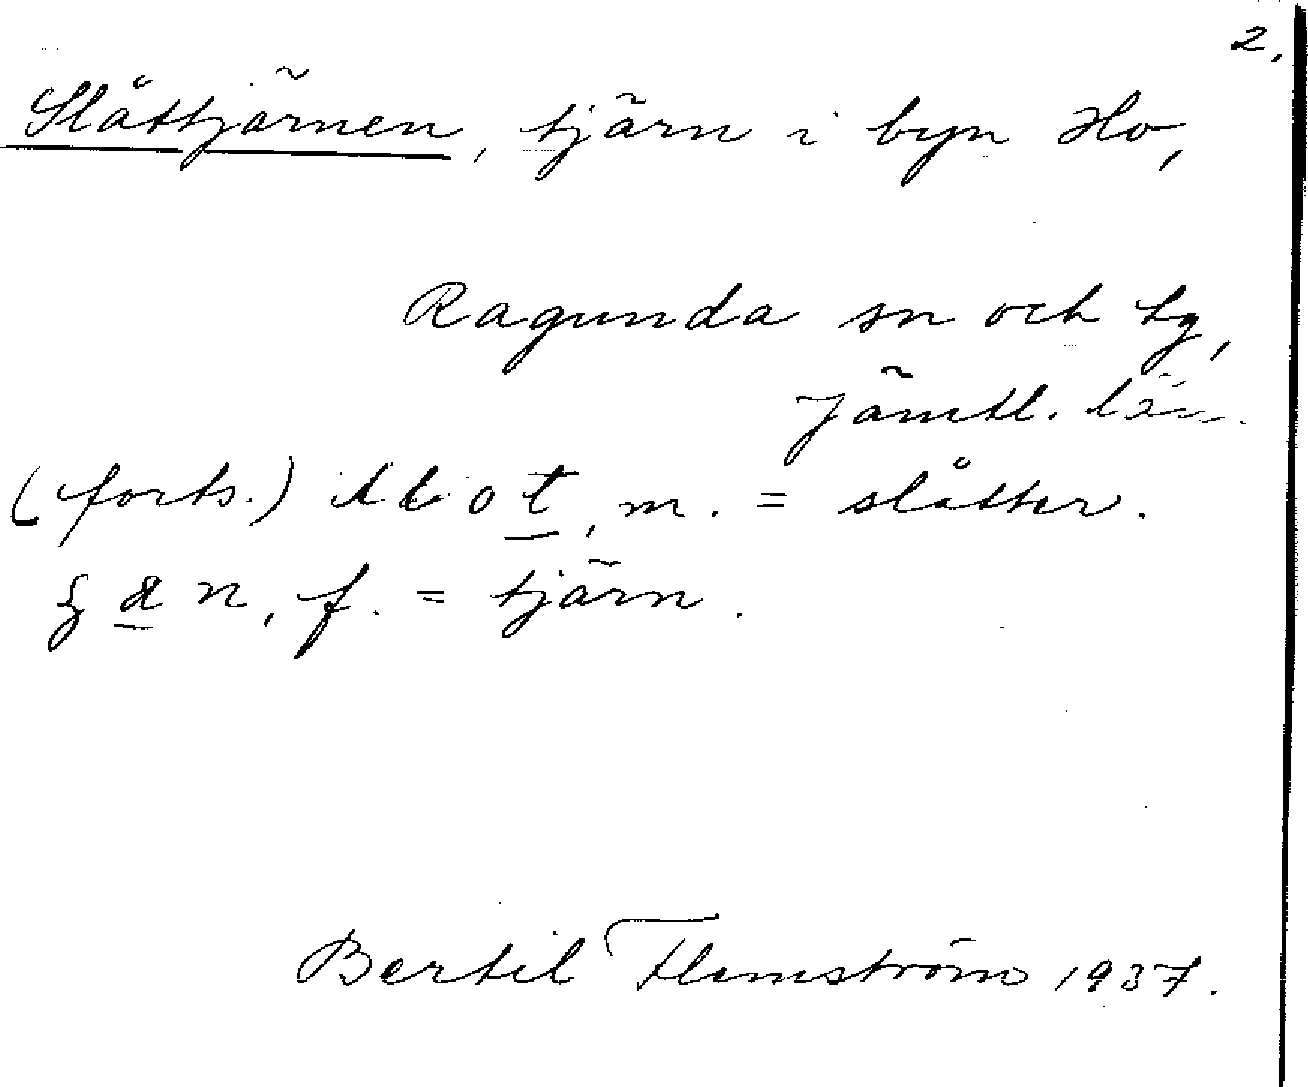 2.
Slåttjärnen, tjärn i byn Ho,
Ragunda sn och tg,
Jämtl. län.
(forts.) m. = slåtter.
f. = tjärn.
Bertil Flemström 1937.